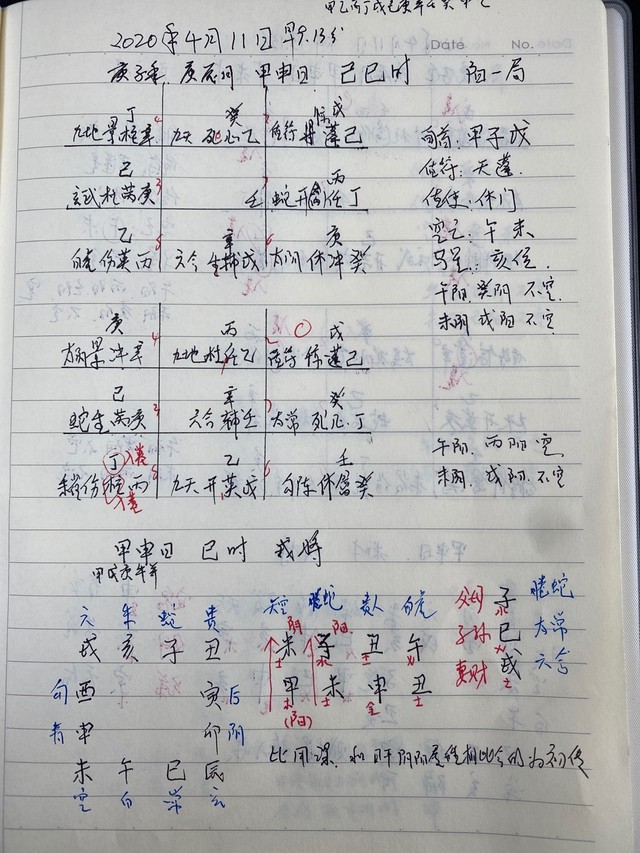 Date No.
2020年4月11日 早9.13分
庚子年 庚辰月 甲申日 己巳时 阳一局
丁 癸 戊
九地景柱辛 九天死心乙 值符惊蓬己 旬首:甲子戊
己 丙 值符:天蓬
玄武杜芮庚 壬 蛇开任丁 值使:休门
乙 辛 庚 空亡:午未
白虎伤英丙 六合生辅戊 太阴休冲癸 马星:亥位
午阴 癸阴 不空
未阴 戊阳 不空
庚 丙 戊
太阴景冲辛 九地杜任乙 值符惊蓬己
己 辛 癸
蛇生芮庚 六合辅壬 太常死心丁
丁入墓 乙 壬 午阴、丙阴 空
伤柱丙 九天开英戊 勾陈休禽癸 未阴、戊阳、不空
入墓
甲申日 巳时 戌将
甲戊庚牛羊
六 朱 蛇 贵 空 螣蛇 贵人 白虎 父母 子水 螣蛇
戌 亥 子 丑 未土 子水 丑土 午火 子孙 巳火 太常
勾 酉 寅 后 甲木 未 申金 丑土 妻财 戌土 六合
青 申 卯 阴 (阳)
未 午 巳 辰
空 白 常 玄
比用课、和日干阴阳属性相比合的为初传